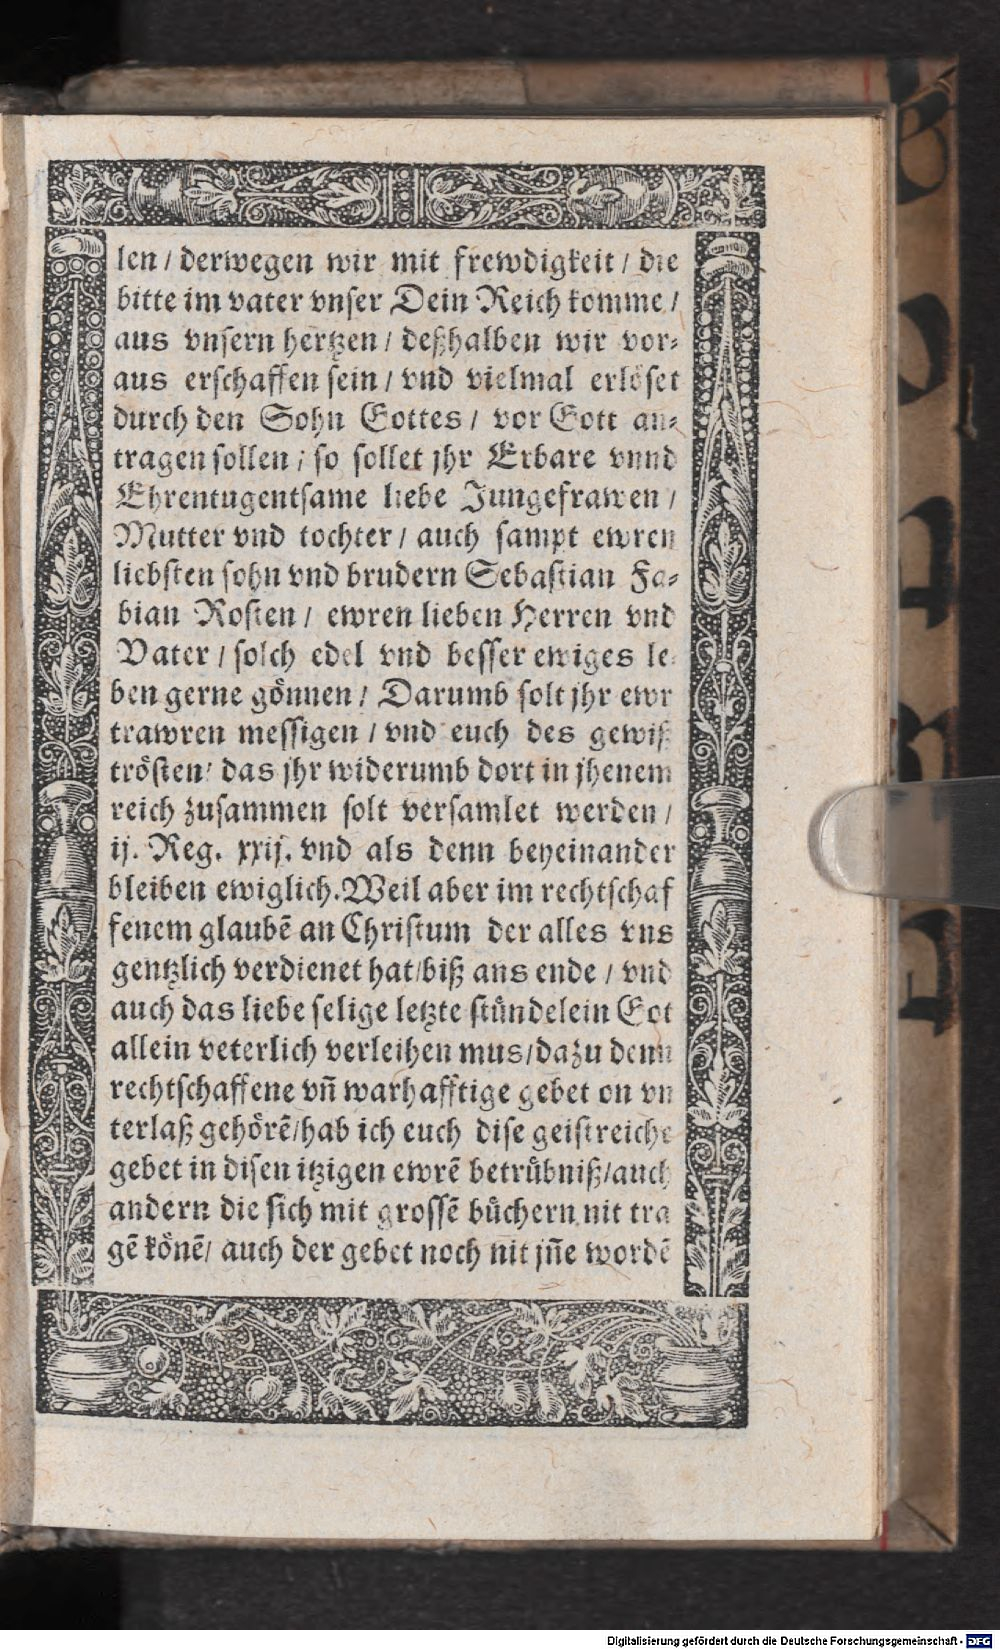 len / derwegen wir mit frewdigkeit / die
bitte im vater vnser Dein Reich komme /
aus vnsern hertzen / deßhalben wir vor⸗
aus erschaffen sein / vnd vielmal erlöset
durch den Sohn Gottes / vor Gott an⸗
tragen sollen / so sollet jhr Erbare vnnd
Ehrentugentsame liebe Jungefrawen /
Mutter vnd tochter / auch sampt ewren
liebsten sohn vnd brudern Sebastian Fa⸗
bian Rosten / ewren lieben Herren vnd
Vater / solch edel vnd besser ewiges le⸗
ben gerne gönnen / Darumb solt jhr ewr
trawren messigen / vnd euch des gewiß
trösten / das jhr widerumb dort in jhenem
reich zusammen solt versamlet werden /
ij. Reg. xxij. vnd als denn beyeinander
bleiben ewiglich. Weil aber im rechtschaf
fenem glaubẽ an Christum der alles vns
gentzlich verdienet hat / biß ans ende / vnd
auch das liebe selige letzte stündelein Got
allein veterlich verleihen mus / dazu denn
rechtschaffene vñ warhafftige gebet on vn
terlaß gehörẽ / hab ich euch dise geistreiche
gebet in disen itzigen ewrẽ betrübniß / auch
andern die sich mit grossẽ büchern nit tra
gẽ könẽ / auch der gebet noch nit jñe wordẽ
Digitalisierung gefördert durch die Deutsche Forschungsgemeinschaft - DFG